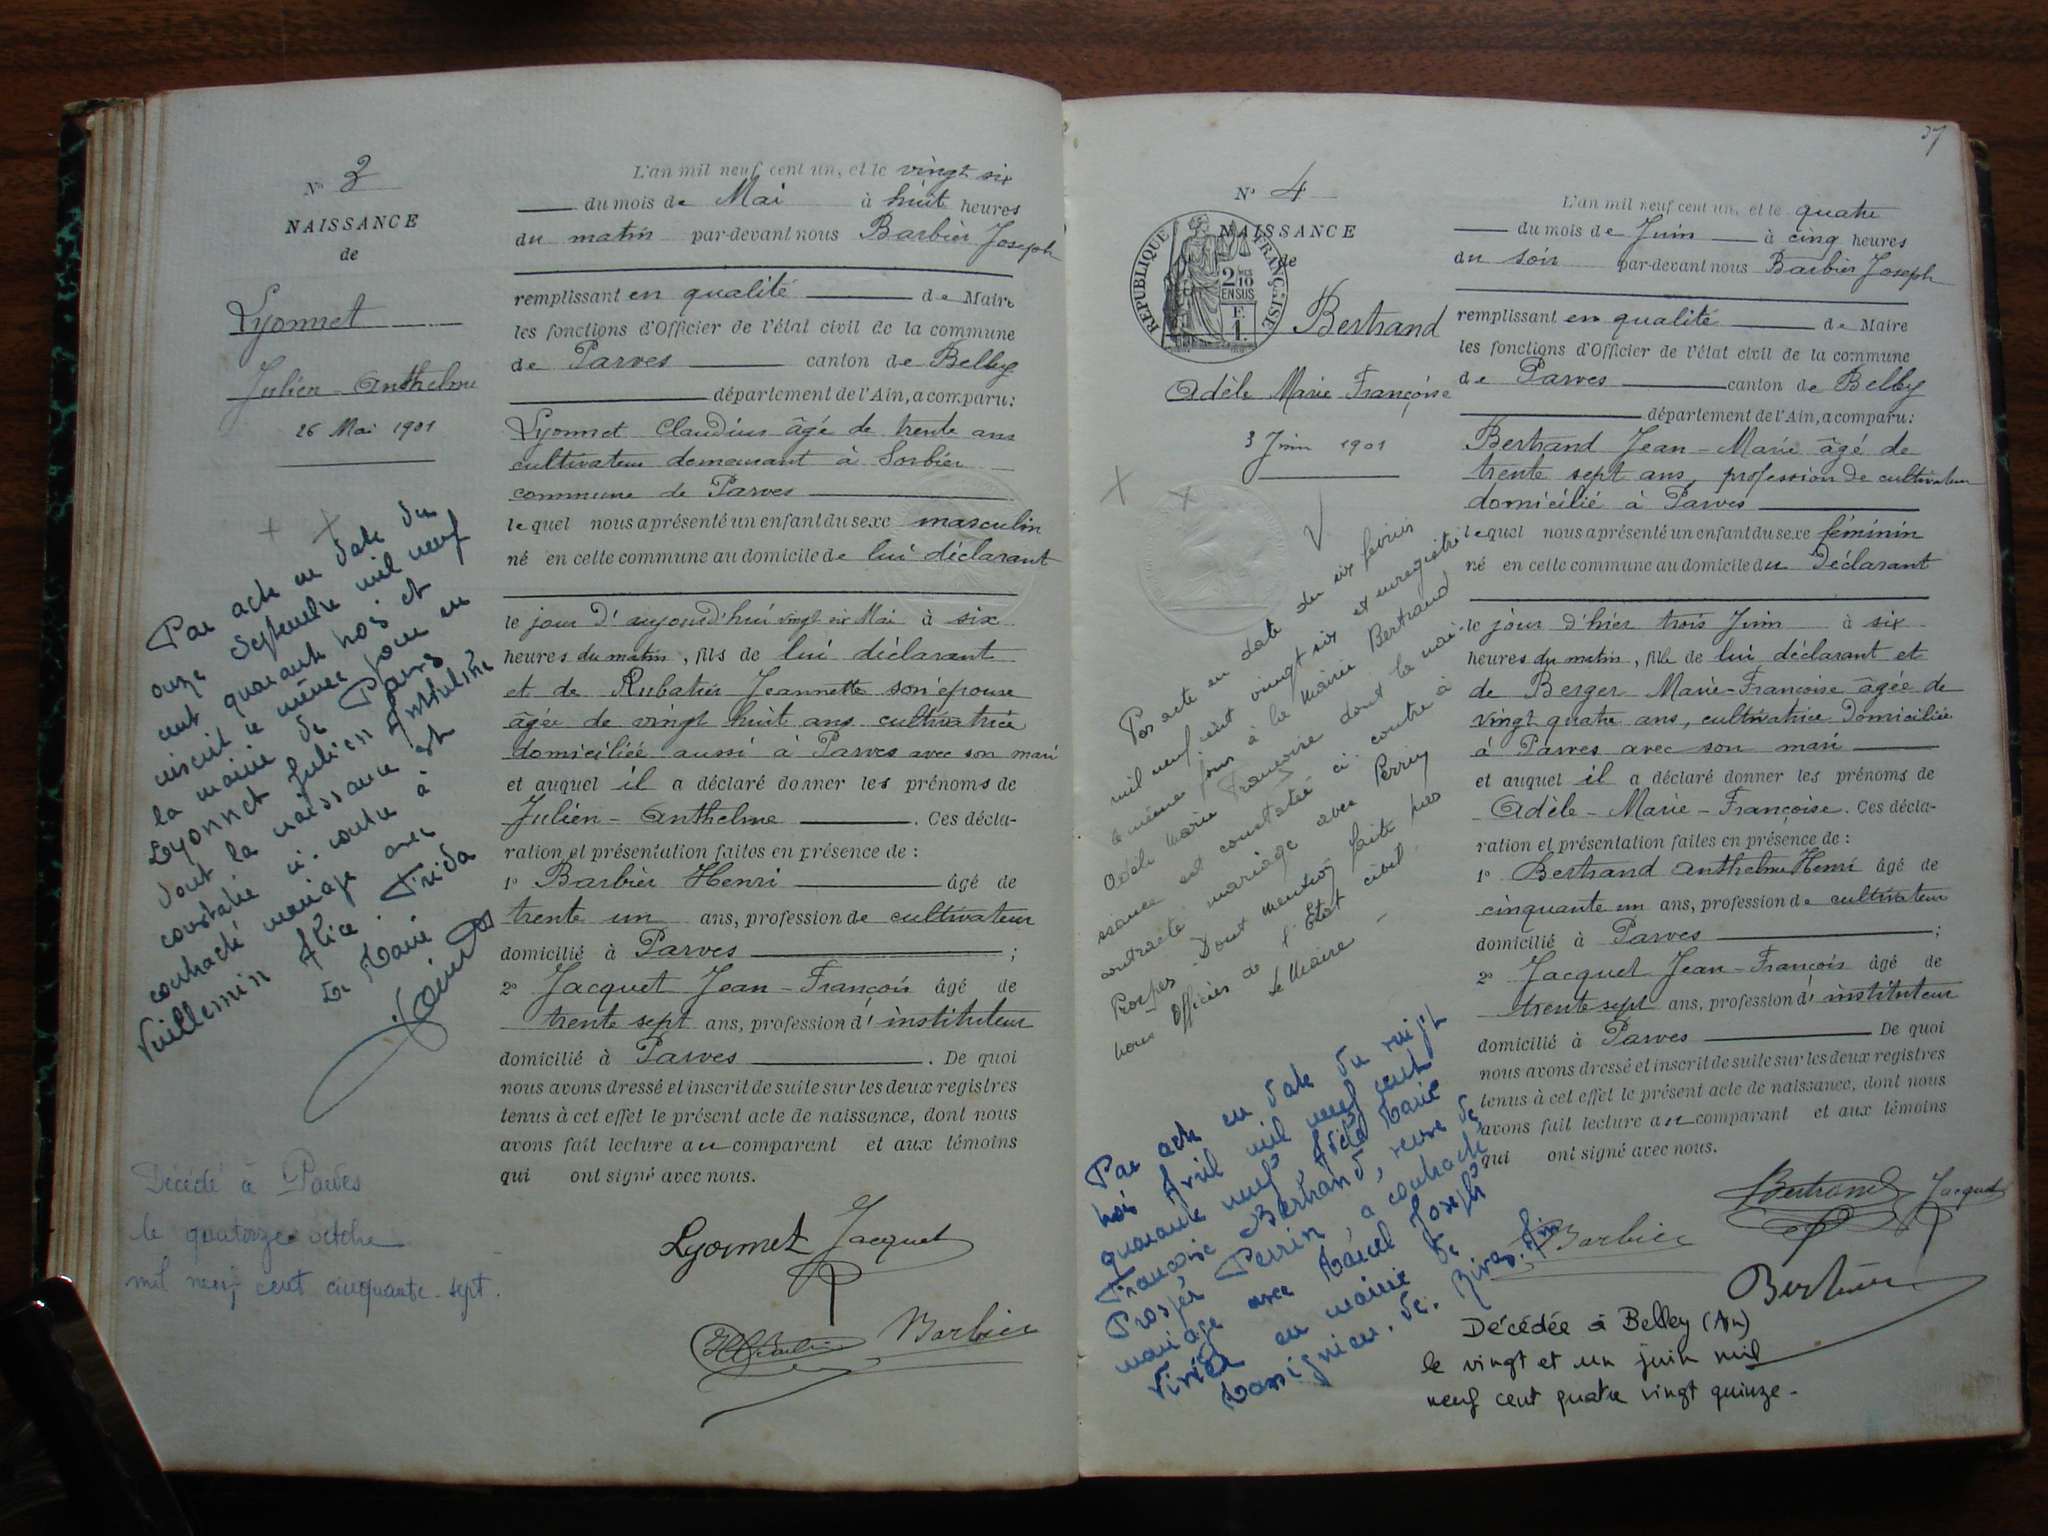 N° 2
NAISSANCE
de
Lyonnet
Julien-Anthelme
26 Mai 1901
Par acte en date du
onze Septembre mil neuf
cent quarante trois et
inscrit le même jour en
la mairie de Parves
Lyonnet Julien Anthelme
dont la naissance est
constatée ci-contre à
contracté mariage avec
Vuillemin Alice Frida
Le Maire
Décédé à Parves
le quatorze octobre
mil neuf cent cinquante-sept.
L'an mil neuf cent un, et le vingt six
du mois de Mai à huit heures
du matin par-devant nous Barbier Joseph
remplissant en qualité de Maire
les fonctions d'Officier de l'état civil de la commune
de Parves canton de Belley
département de l'Ain, a comparu:
Lyonnet Claudius âgé de trente ans
cultivateur demeurant à Sorbier
commune de Parves
lequel nous a présenté un enfant du sexe masculin
né en cette commune au domicile de lui déclarant
le jour d'aujourd'hui vingt six Mai à six
heures du matin, fils de lui déclarant
et de Rubatier Jeannette son épouse
âgée de vingt huit ans cultivatrice
domiciliée aussi à Parves avec son mari
et auquel il a déclaré donner les prénoms de
Julien-Anthelme . Ces décla-
ration et présentation faites en présence de :
1° Barbier Henri âgé de
trente un ans, profession de cultivateur
domicilié à Parves ;
2° Jacquet Jean-François âgé de
trente sept ans, profession d'instituteur
domicilié à Parves . De quoi
nous avons dressé et inscrit de suite sur les deux registres
tenus à cet effet le présent acte de naissance, dont nous
avons fait lecture au comparant et aux témoins
qui ont signé avec nous.
Lyonnet Jacquet
Barbier
37
N° 4
NAISSANCE
de
RÉPUBLIQUE FRANÇAISE
2 10
EN SUS
Bertrand
Adèle Marie Françoise
3 Juin 1901
Par acte en date du six février
mil neuf cent vingt six et enregistré
le même jour à la mairie Bertrand
Adèle Marie Françoise dont la nai-
ssance est constatée ci-contre à
contracté mariage avec Perrin
Prosper. Dont mention faite par
nous Officier de l'Etat civil.
Le Maire
Par acte en date du vingt
trois Avril mil neuf cent
quarante neuf, Adèle Marie
Françoise Bertrand, veuve de
Prosper Perrin, a contracté
mariage avec Marcel Joseph
en mairie de
Massignieu-de-Rives, Ain
L'an mil neuf cent un, et le quatre
du mois de Juin à cinq heures
du soir par-devant nous Barbier Joseph
remplissant en qualité de Maire
les fonctions d'Officier de l'état civil de la commune
de Parves canton de Belley
département de l'Ain, a comparu:
Bertrand Jean-Marie âgé de
trente sept ans, profession de cultivateur
domicilié à Parves
lequel nous a présenté un enfant du sexe féminin
né en cette commune au domicile du Déclarant
le jour d'hier trois Juin à six
heures du matin, fille de lui déclarant et
de Berger Marie-Françoise âgée de
vingt quatre ans, cultivatrice domiciliée
à Parves avec son mari
et auquel il a déclaré donner les prénoms de
Adèle-Marie-Françoise. Ces décla-
ration et présentation faites en présence de :
1° Bertrand Anthelme Henri âgé de
cinquante un ans, profession de cultivateur
domicilié à Parves ;
2° Jacquet Jean-François âgé de
trente sept ans, profession d'instituteur
domicilié à Parves De quoi
nous avons dressé et inscrit de suite sur les deux registres
tenus à cet effet le présent acte de naissance, dont nous
avons fait lecture au comparant et aux témoins
qui ont signé avec nous.
Bertrand Jacquet
Barbier
Décédée à Belley (Ain)
le vingt et un juin mil
neuf cent quatre vingt quinze.